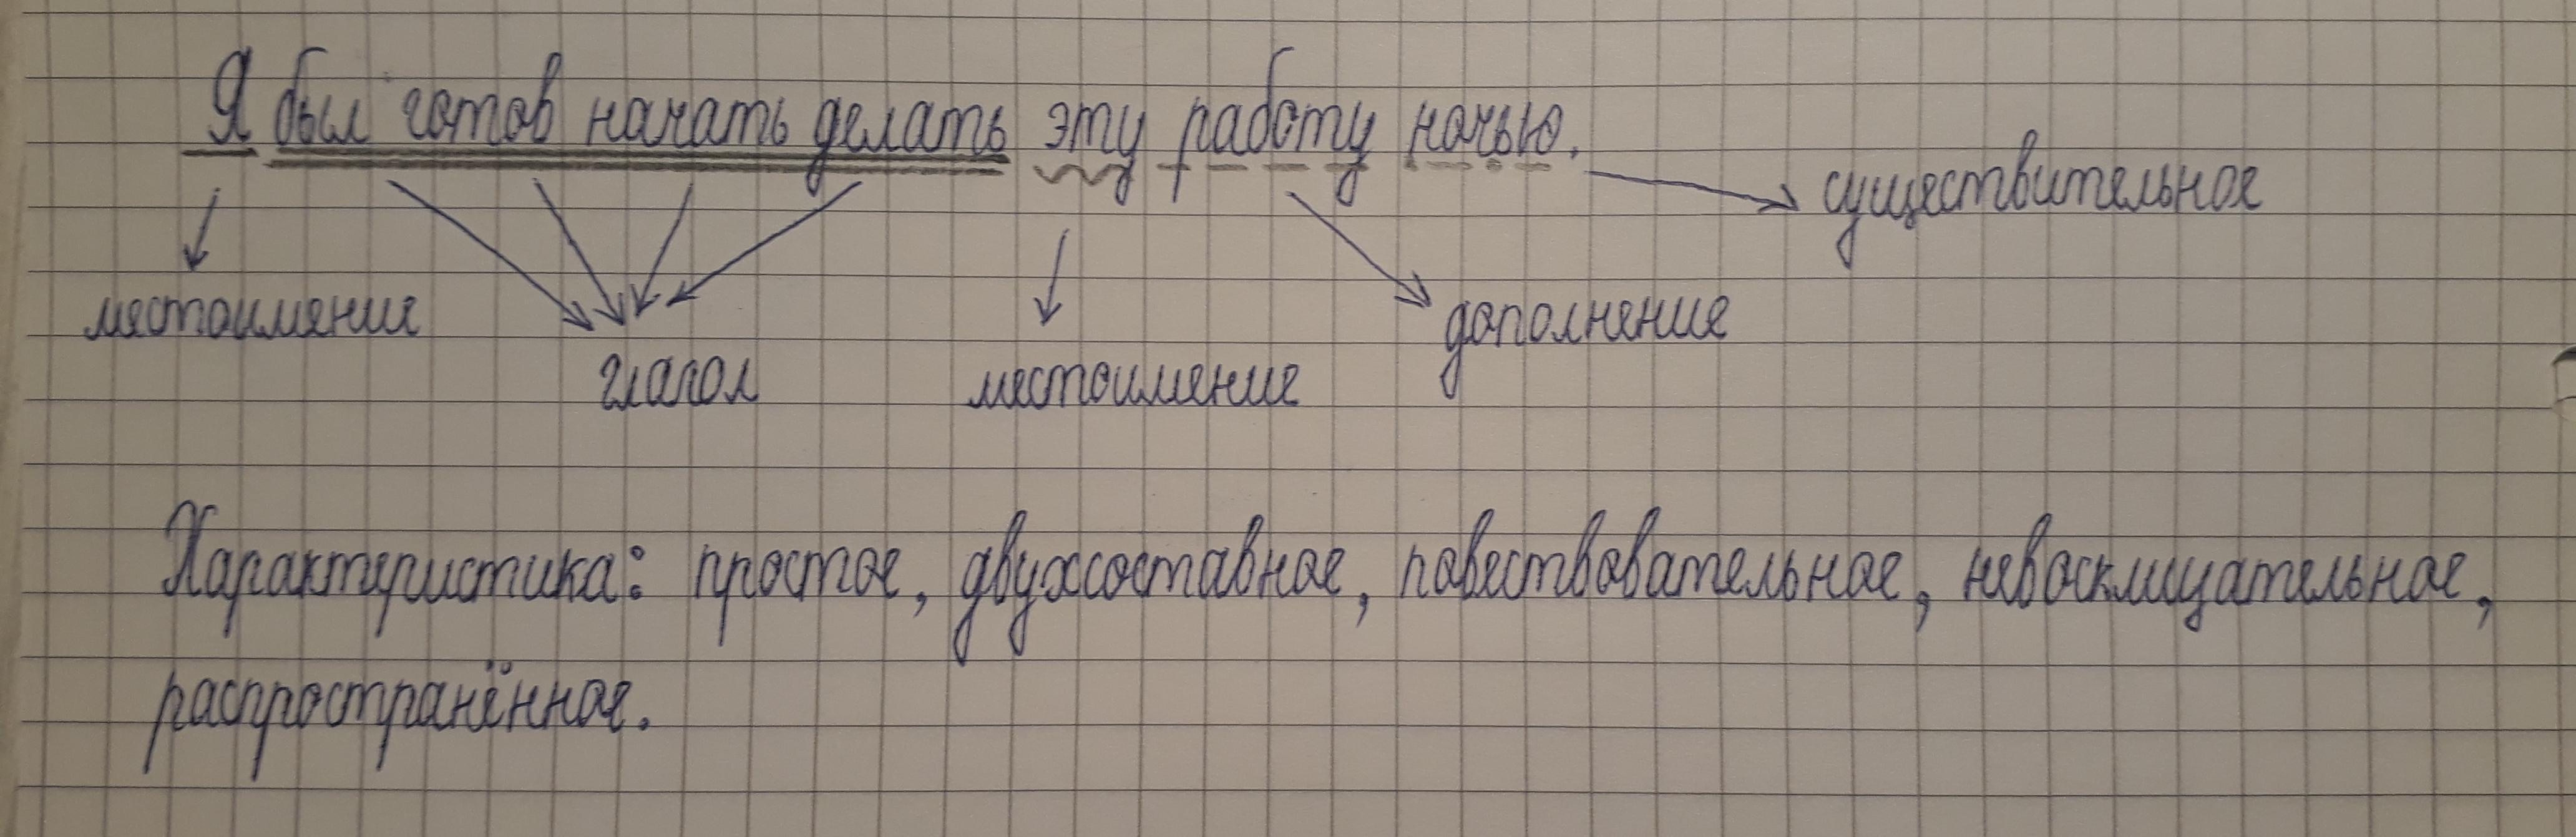 Я был готов начать делать эту работу ночью.
существительное
местоимение
дополнение
глагол
местоимение
Характеристика: простое, двухсоставное, повествовательное, невосклицательное,
распространённое.